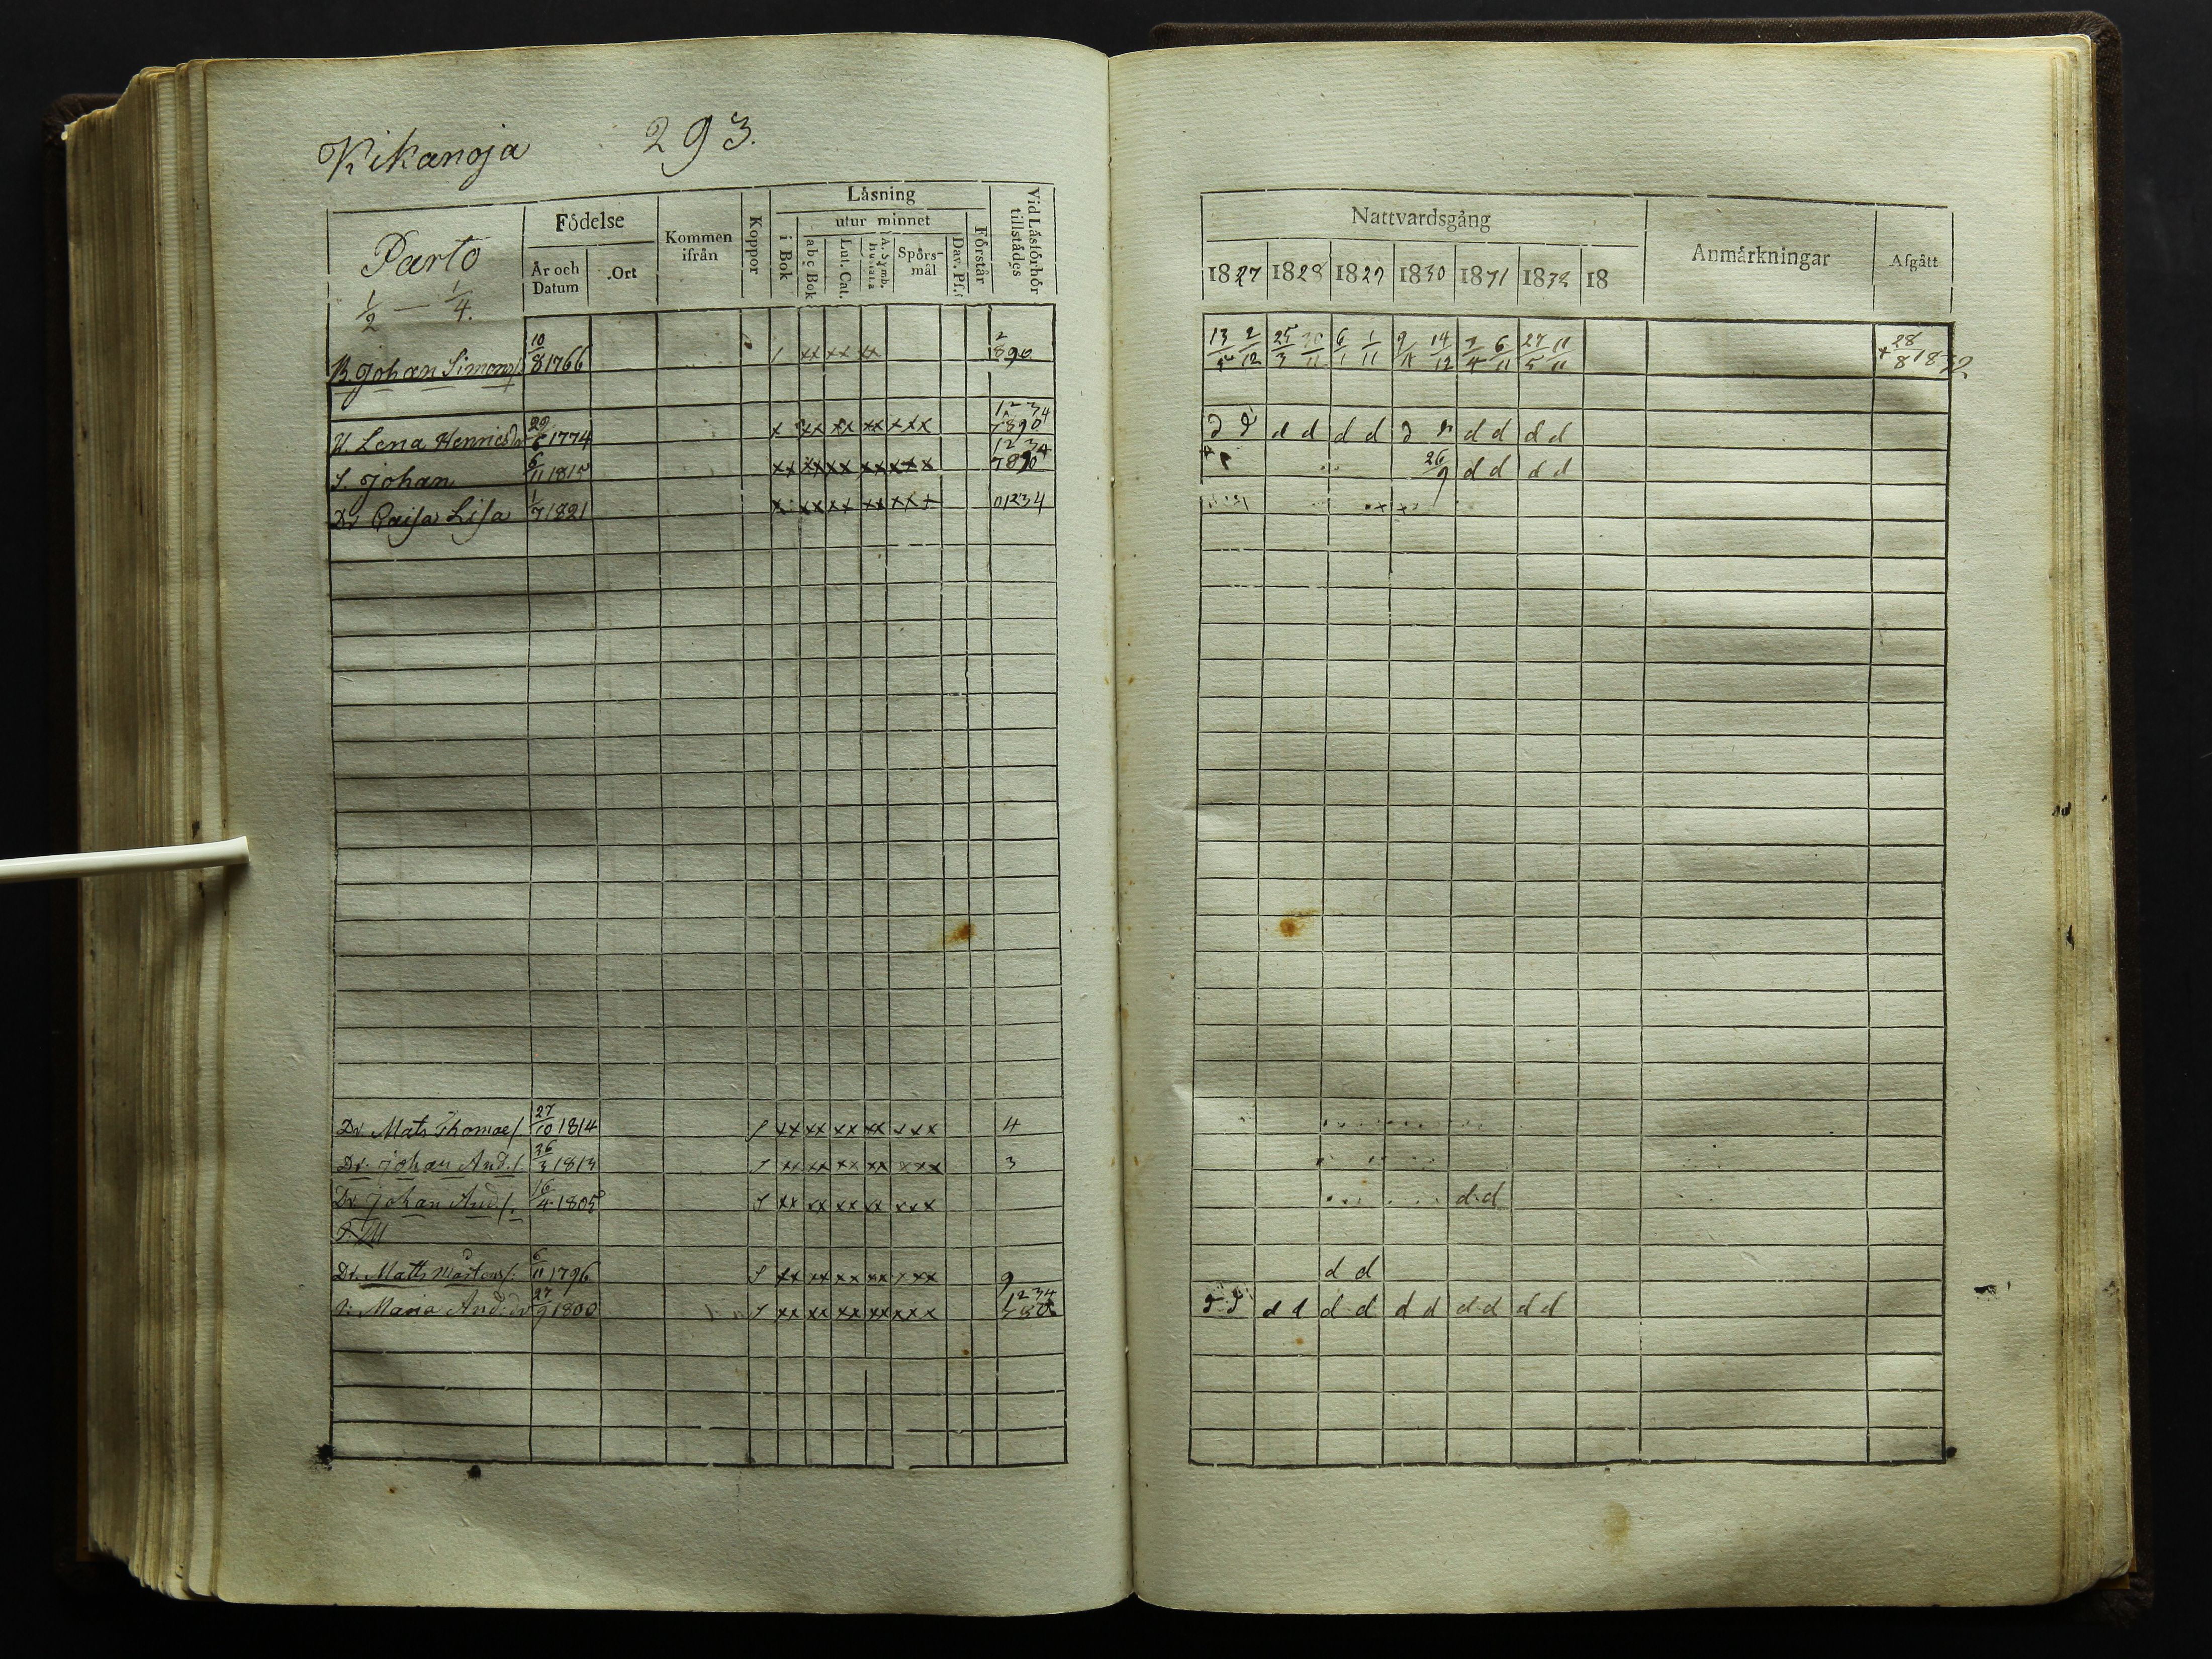 Kikanoja 293.
Parto
1/2 — 1/4.
Födelse
År och Datum
Ort
Kommen ifrån
Koppor
Läsning
i Bok
utur minnet
abc Bok
Lut. Cat.
A. Symb. hustafla
Spörsmål
Dav. Ps.
Förstår
Vid Läsförhör tillstädes
B. Johan Simonss 10/8 1766 / xx xx xx 2 890
H. Lena Henricsdr 29/6 1774 x xx xx xx xxx 1234 7890
S. Johan 6/11 1815 xx xx xx xx xxx 1234 7890
Dr Caisa Lisa 1/7 1821 x xx xx xx xxx 01234
Dr. Mats Thomae/. 27/10 1814 S xx xx xx xx xxx 4
Dr. Johan And./. 26/3 1813 S xx xx xx xx xxx 3
Dr Johan And/. 16/4 1805 S xx xx xx xx xxx
Dr. Matts Mårtens/. 6/11 1796 S xx xx xx xx xxx 9
Maria And:dr 27/9 1800 S xx xx xx xx xxx 1234
Nattvardsgång
Anmärkningar
Afgått
1827 1828 1829 1830 1831 1832 18
13/5 2/12 25/3 6/1 1/11 14/12 6/11 27/5 11/11 + 28/8 1832
d d d d d d d d d d
26/9 d d d d
d d
d d
d d d d d d d d d d d d